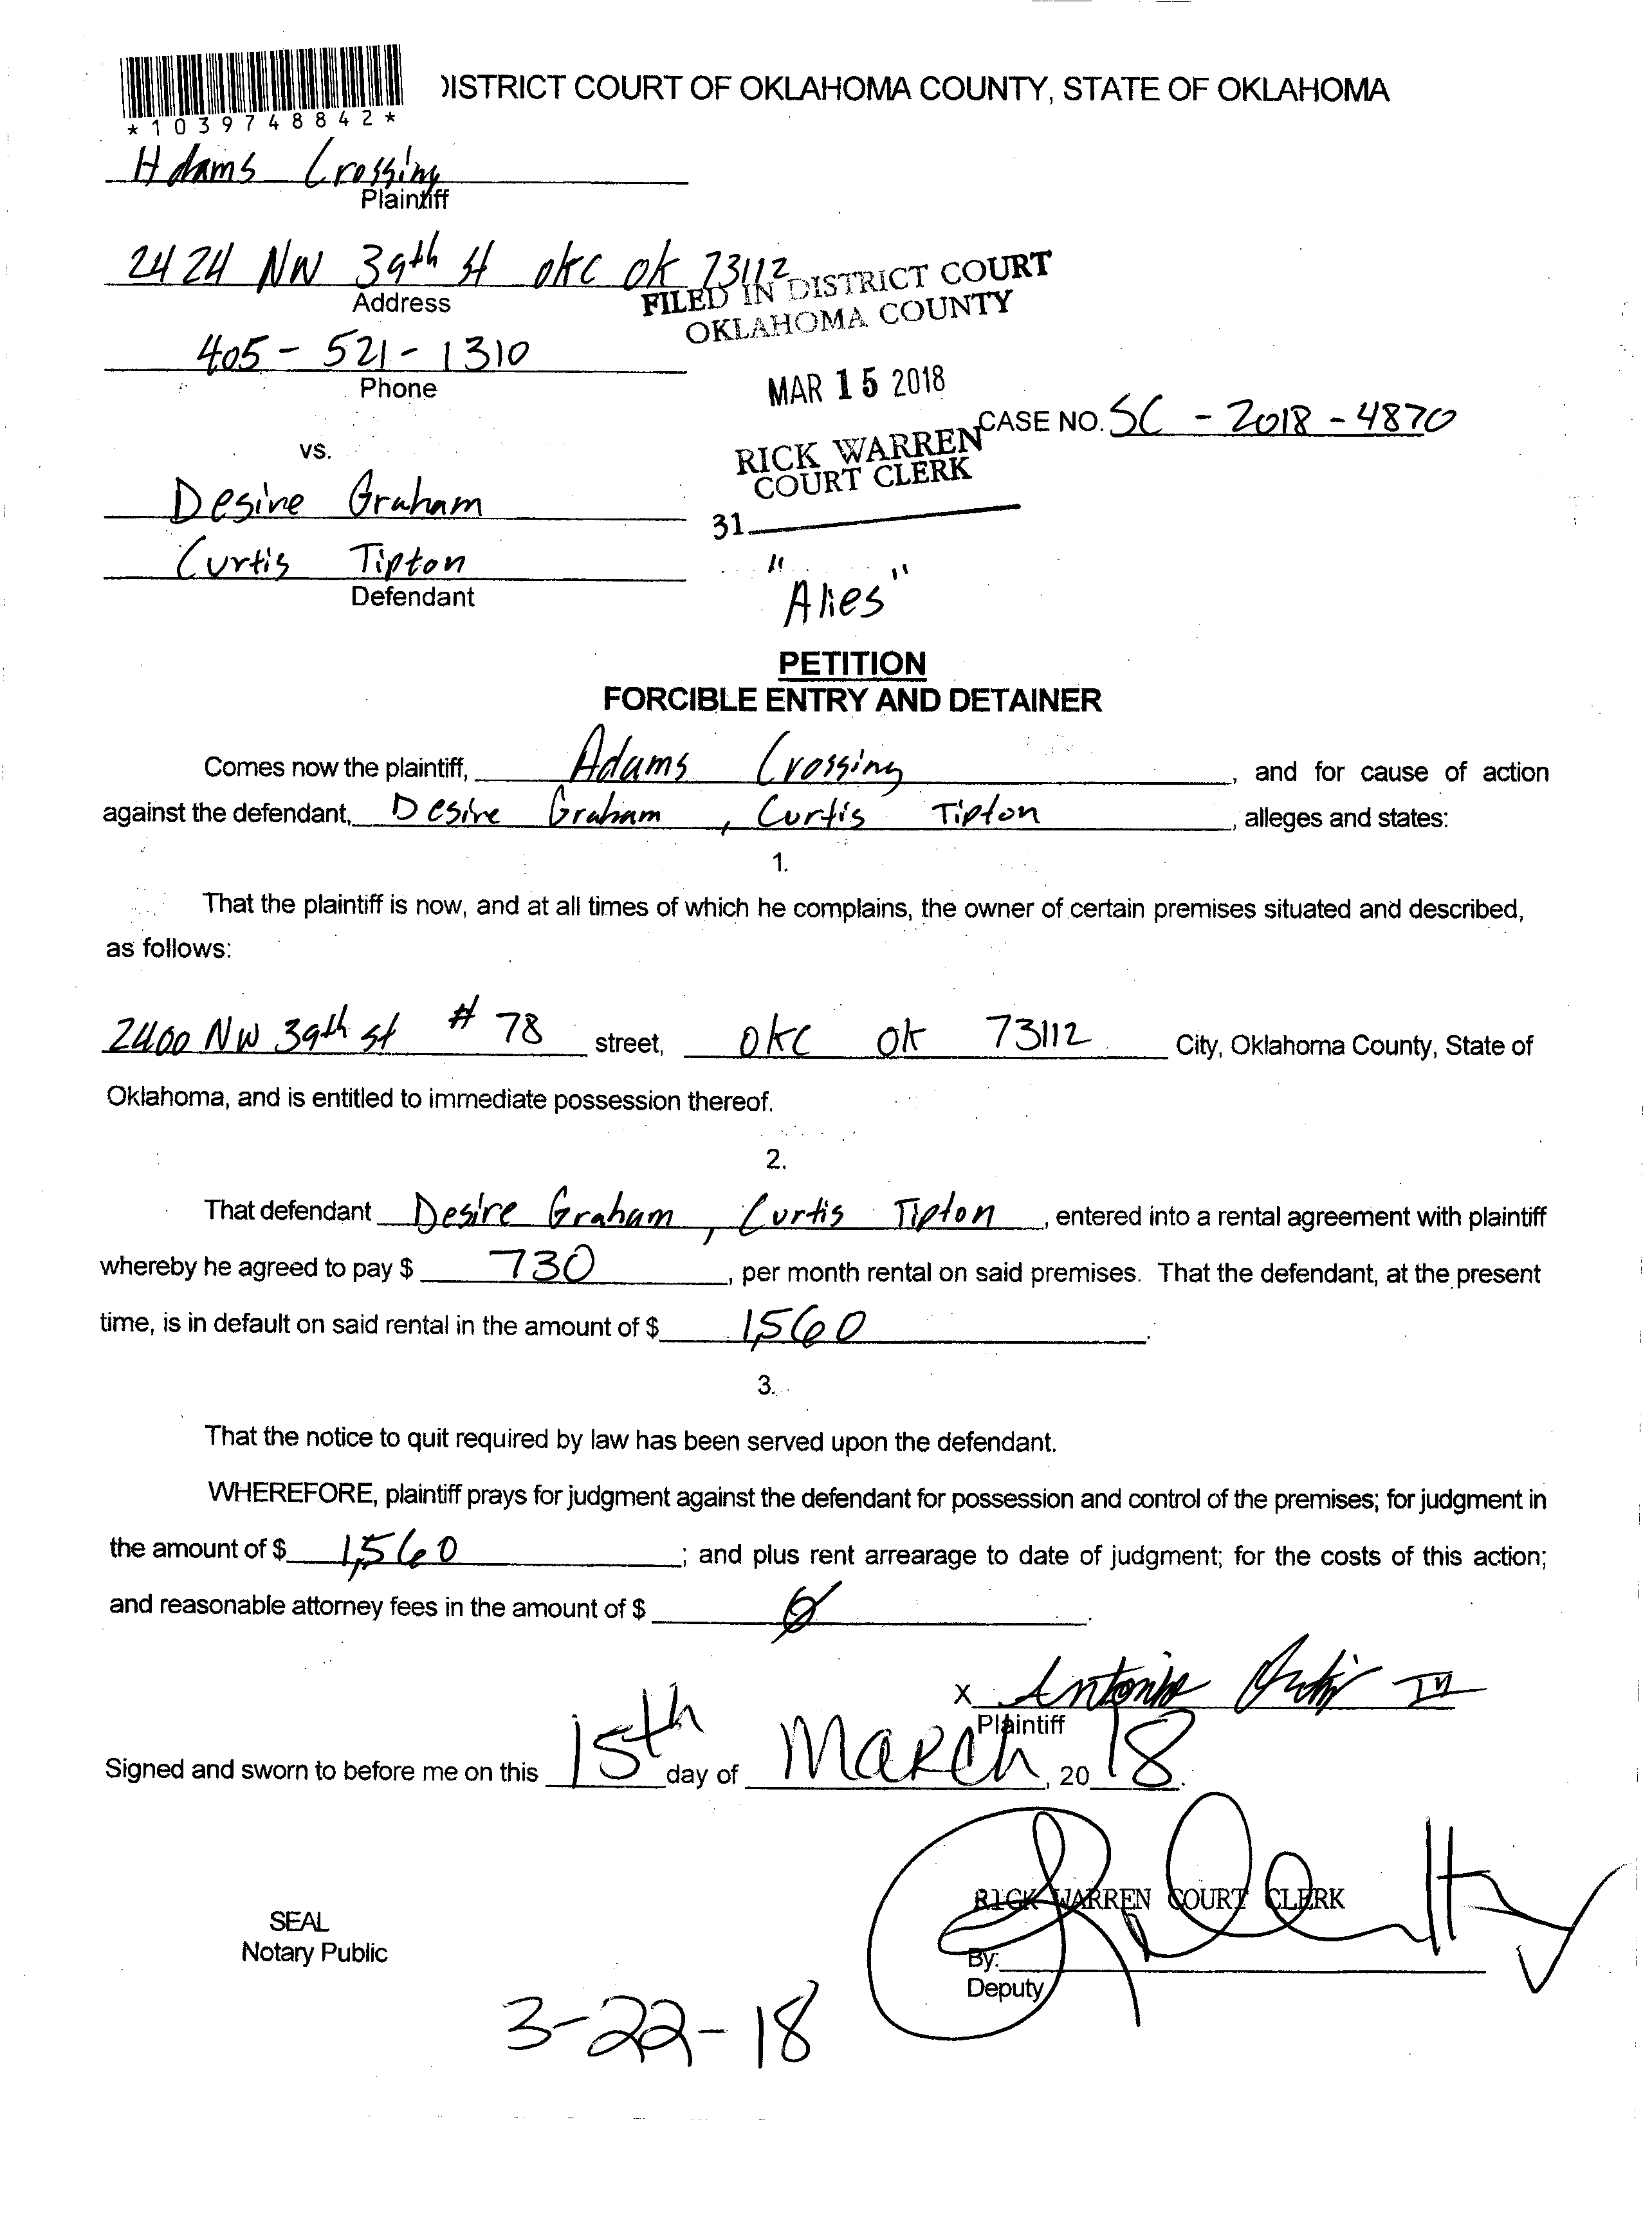 *1039748842*
DISTRICT COURT OF OKLAHOMA COUNTY, STATE OF OKLAHOMA
Adams Crossing
Plaintiff
2424 NW 39th st OKC OK 73112
Address
FILED IN DISTRICT COURT
OKLAHOMA COUNTY
405-521-1310
Phone
MAR 15 2018
CASE NO. SC-2018-4870
vs.
RICK WARREN
COURT CLERK
Desire Graham
31
Curtis Tipton
Defendant
PETITION
FORCIBLE ENTRY AND DETAINER
Comes now the plaintiff, Adams Crossing, and for cause of action
against the defendant, Desire Graham, Curtis Tipton, alleges and states:
1.
That the plaintiff is now, and at all times of which he complains, the owner of certain premises situated and described,
as follows:
2400 NW 39th st # 78 street, OKC OK 73112 City, Oklahoma County, State of
Oklahoma, and is entitled to immediate possession thereof.
2.
That defendant Desire Graham, Curtis Tipton, entered into a rental agreement with plaintiff
whereby he agreed to pay $ 730, per month rental on said premises. That the defendant, at the present
time, is in default on said rental in the amount of $ 1,560.
3.
That the notice to quit required by law has been served upon the defendant.
WHEREFORE, plaintiff prays for judgment against the defendant for possession and control of the premises; for judgment in
the amount of $ 1,560; and plus rent arrearage to date of judgment; for the costs of this action;
and reasonable attorney fees in the amount of $ 0.
X
Plaintiff
Signed and sworn to before me on this 15th day of March, 2018.
RICK WARREN COURT CLERK
SEAL
Notary Public
By:
Deputy
3-22-18